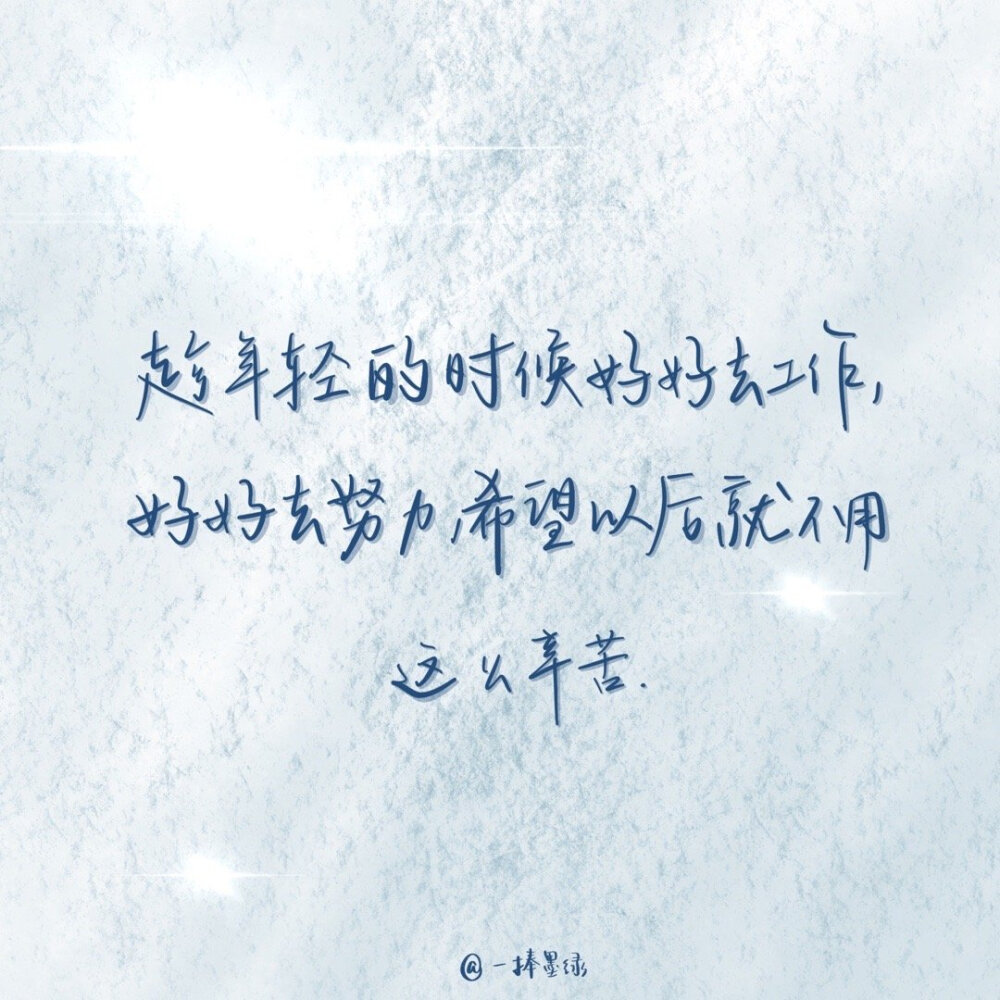 趁年轻的时候好好去工作,
好好去努力,希望以后就不用
这么辛苦.
@一捧墨绿